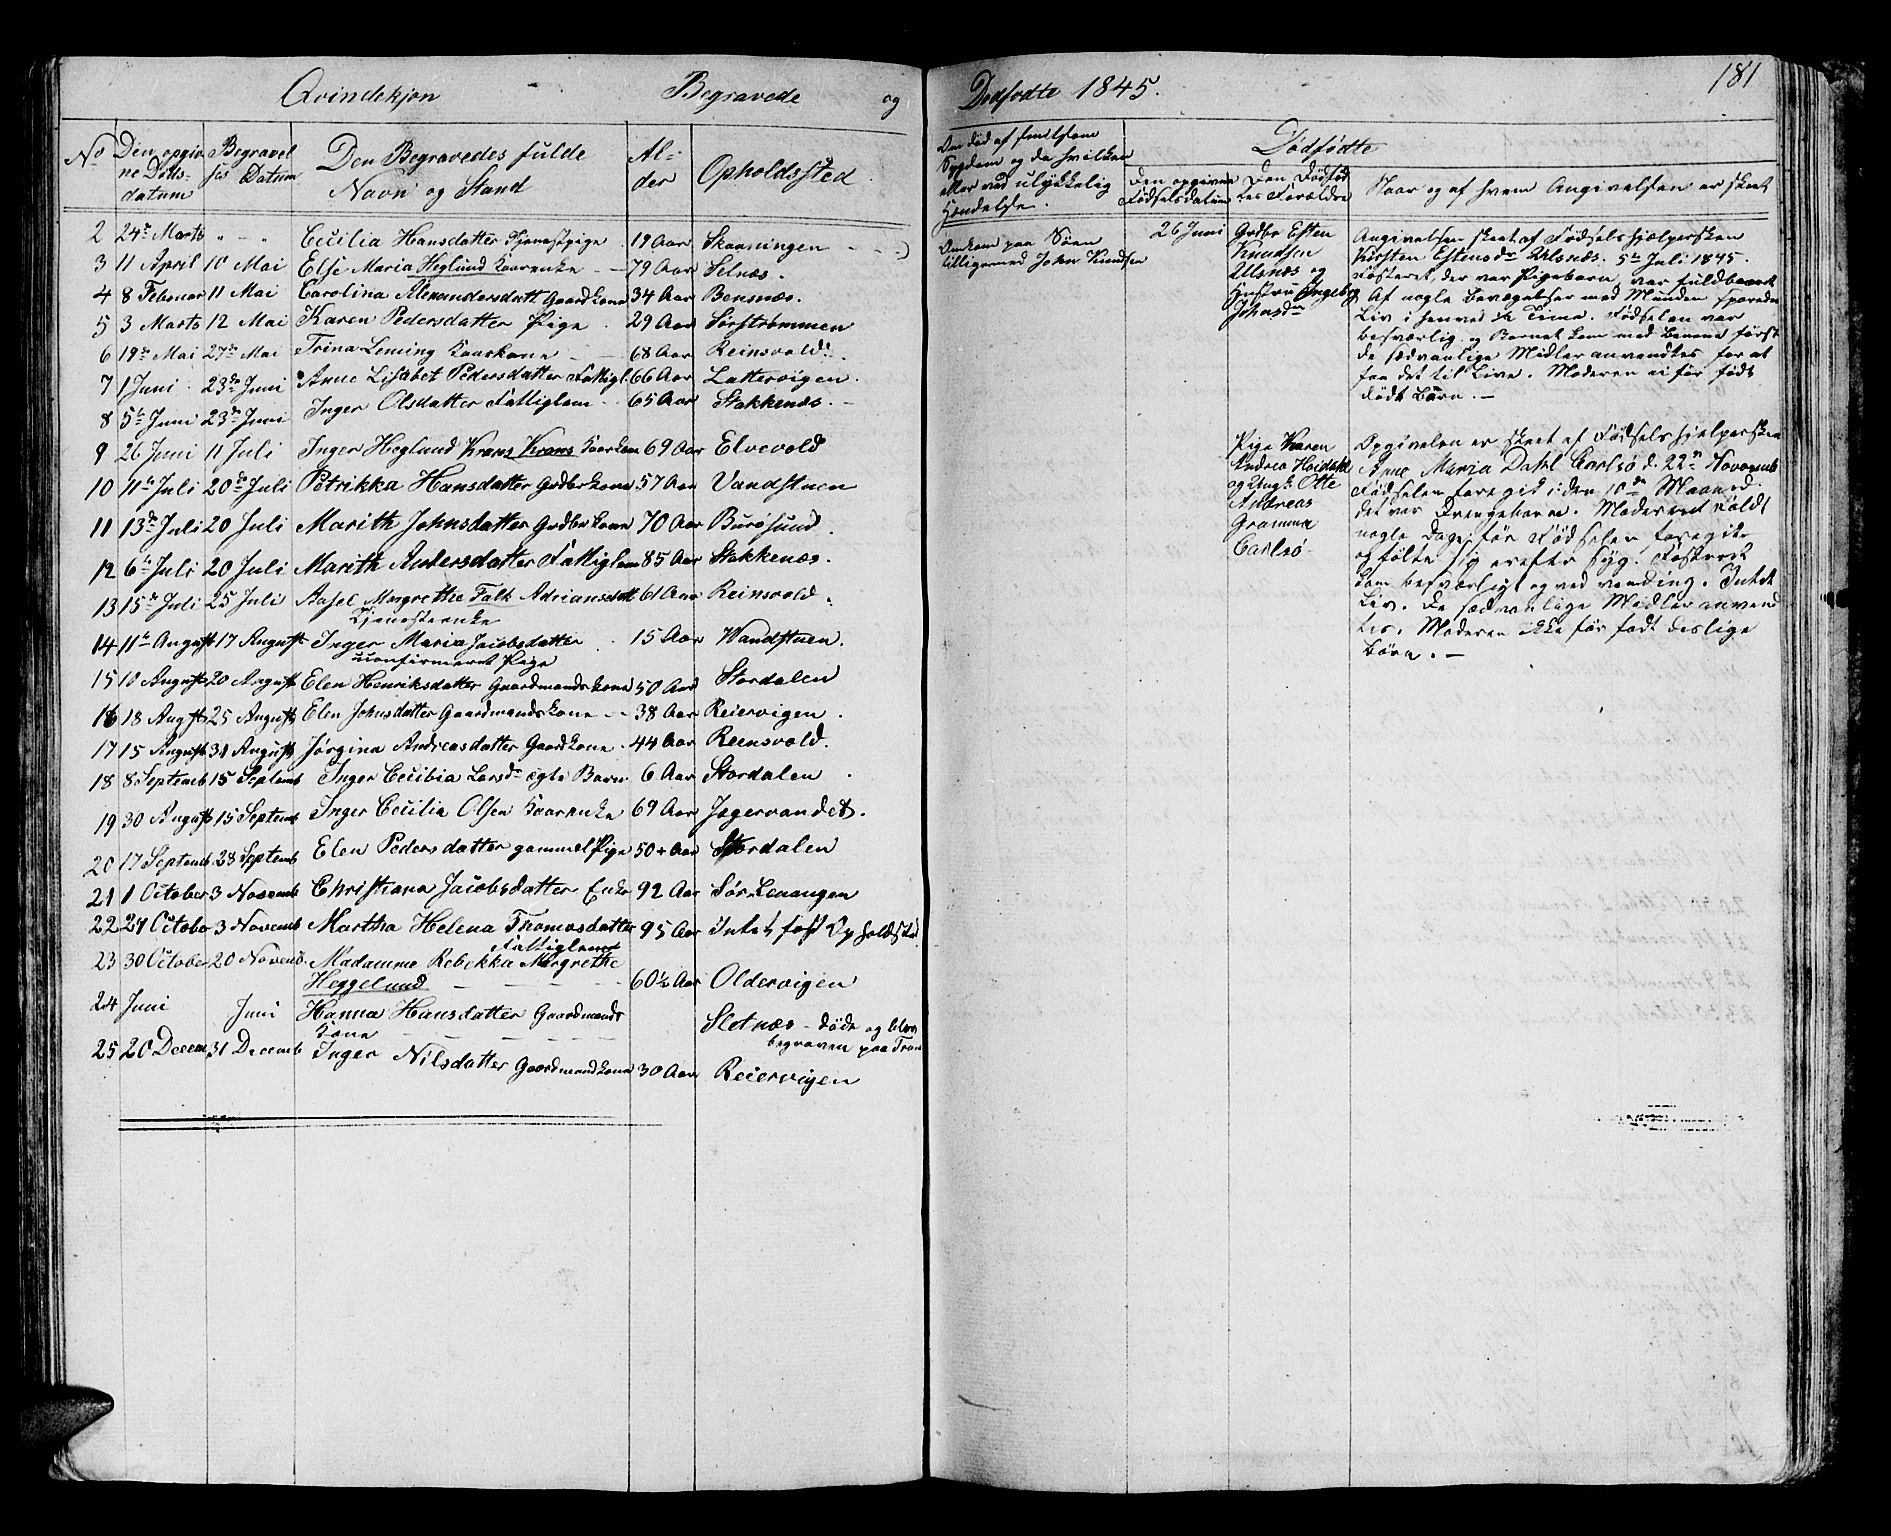 Qvindekjøn Begravede og
No Den opgivne Dødsdatum Begravelses Datum Den Begravedes fulde Navn og Stand Alder Opholdssted
2 24de Marts " - " - Cecilia Hansdatter Tjenestpige 19 Aar Skaaningen
3 11 April 10 Mai Else Maria Heglund Kaarenke 79 Aar Selnæs.
4 8 Februar 11 Mai Carolina Alexandersdatt Gaardkone 34 Aar Bensnæs.
5 3 Marts 12 Mai Karen Pedersdatter Pige 29 Aar Sørstrømmen
6 19de Mai 27de Mai Trina Leming Kaarkone 68 Aar Reinsvold.
7 1 Juni 23de Juni Anne Lisabet Pedersdatter Fattigl. 66 Aar Lattervigen.
8 5te Juni 23de Juni Inger Olsdatter Fattiglem 65 Aar Stakkenæs.
9 26 Juni 11 Juli Inger Heglund Krans Krans Kaarkone 69 Aar Elvevold
10 11te Juli 20de Juli Petrikka Hansdatter Grdbrkone 57 Aar Vandstuen
11 13de Juli 20 Juli Marith Johnsdatter Grdbr kone 70 Aar Burøsund.
12 6te Juli 20 Juli Marith Andersdatter Fattiglem 85 Aar Stakkenæs.
13 15de Juli 25 Juli Aasel Margrethe Falk Adriansdatt 61 Aar Reinsvold.
Tjenesteenke
14 11te August 17 August Inger Maria Jacobsdatter 15 Aar Wandstuen.
uconfirmeret Pige
15 10 August 20 August Elen Henriksdatter Gaardmandskone 50 Aar Stordalen
16 18 August 25 August Elen Johnsdatter Gaardmandskone 38 Aar Reiervigen.
17 15 August 31 August Jørgina Andreasdatter Gaardkone 44 Aar Reensvold.
18 8 Septemb 15 Septemb Inger Cecibia Larsdr ægte Barn 6 Aar Stordalen
19 30 August 15 Septemb Inger Cecilia Olsen Kaarenke 69 Aar Jegervandet.
20 17 Septemb. 28 Septemb Elen Pedersdatter gammel Pige 50 + Aar Stordalen
21 1 October 3 Novemb Christiana Jacobsdatter Enke 92 Aar Sør Lenangen
22 24 Octobe 3 Novemb Martha Helena Thomasdatter 95 Aar Intet fast Opholdsted
Fattiglem
23 30 October 20 Novemb. Madamme Rebekka Margrethe
Heggelund 60½ Aar Oldervigen
24 Juni Juni Hanna Hansdatter Gaardmands
Kone Sletnæs - døde og blev
begraven paa Trom
25 20 Decem 31 Decemb Inger Nilsdatter Gaardmandkone 30 Aar Reiervigen
Dødfødte 1845. 181
Om død af smitsom
Sygdom og da hvilken
eller ved ulykkelig
Hændelse.
Dødfødte
Den opgivne Fødselsdatum
Den Dødfødtes Forældre
Naar og af hvem Angivelsen er skeet
Omkom paa Søen
tilligemed John Knudsen
26 Juni
Grdbr Esten
Knudsen
Ulsnæs og
Hustru Ingeborg
Johnsdr
Angivelsen skeet af Fødselshjælpersken
Kirsten Estensdr Ulsnæs. 5te Juli 1845.
Fosteret, der var Pigebarn, var fuldbaaret
Af nogle Bevægelser med Munden sporedes
Liv i henved ½ Time. Fødselen var
besværlig og Barnet kom med Benene først
de sædvanlige Midler anvendtes for at
faa det til Live. Moderen ei før født
dødt Barn. -
Pige Karen
Andrea Heidahl
og Ungk. Otte
Andreas
Gramma
Carlsø
Opgivelsen er skeet af Fødselshjelpersken
Anne Maria Dahl Carlsø d. 22n Novemb
Fødselen foregik i den 10de Maaned.
det var Drengebarn. Moderen faldt
nogle Dage før Fødselen foregik
og følte sig derefter syg. Fosteret
kom besværligt og ved vending. Intet
Liv. De sædvanlige Midler anvend
tes. Moderen ikke før født deslige
Børn. -